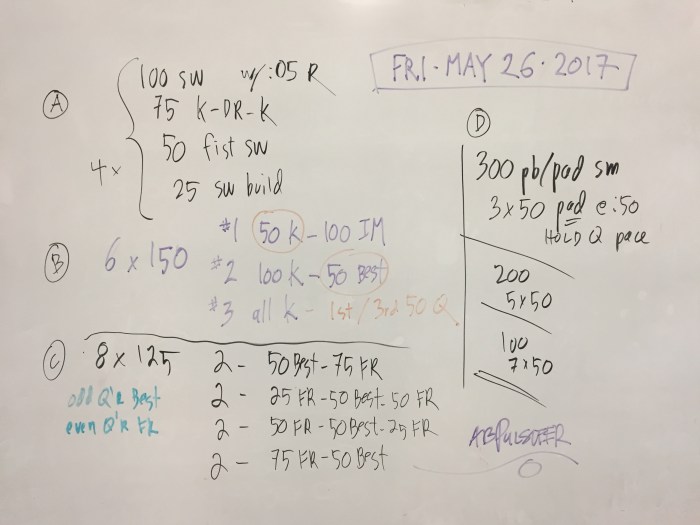 FRI · MAY 26 · 2017
A
4x
100 SW w/ :05 R
75 K-DR-K
50 fist sw
25 sw build
B
6 x 150
#1 50 K - 100 IM
#2 100 K - 50 Best
#3 all K - 1st / 3rd 50 Q
C
8 x 125
odd Q'r Best
even Q'r FR
2 - 50 Best - 75 FR
2 - 25 FR - 50 Best - 50 FR
2 - 50 FR - 50 Best - 25 FR
2 - 75 FR - 50 Best
D
300 pb/pad sm
3 x 50 pad e :50
HOLD Q pace
200
5 x 50
100
7 x 50